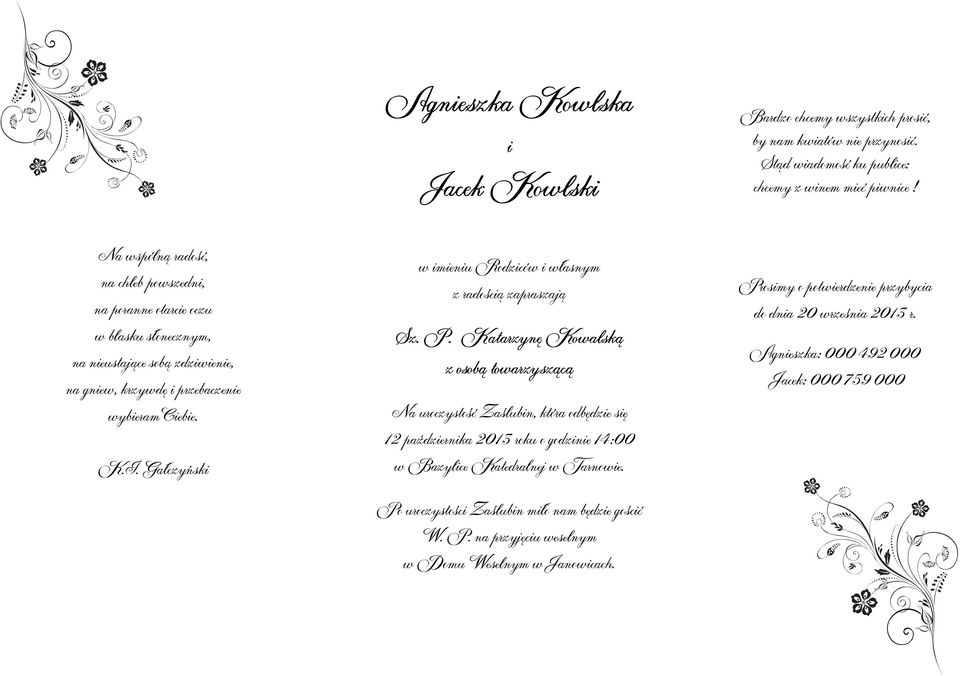 Na wspólną radość,
na chleb powszedni,
na poranne otarcie oczu
w blasku słonecznym,
na nieustające sobą zdziwienie,
na gniew, krzywdę i przebaczenie
wybieram Ciebie.
K.I. Gałczyński
Agnieszka Kowlska
i
Jacek Kowlski
w imieniu Rodziców i własnym
z radością zapraszają
Sz. P. Katarzynę Kowalską
z osobą towarzyszącą
Na uroczystość Zaślubin, która odbędzie się
12 października 2013 roku o godzinie 14:00
w Bazylice Katedralnej w Tarnowie.
Po uroczystości Zaślubin miło nam będzie gościć
W. P. na przyjęciu weselnym
w Domu Weselnym w Janowicach.
Bardzo chcemy wszystkich prosić,
by nam kwiatów nie przynosić.
Stąd wiadomość ku publice:
chcemy z winem mieć piwnice !
Prosimy o potwierdzenie przybycia
do dnia 20 września 2013 r.
Agnieszka: 000 492 000
Jacek: 000 759 000